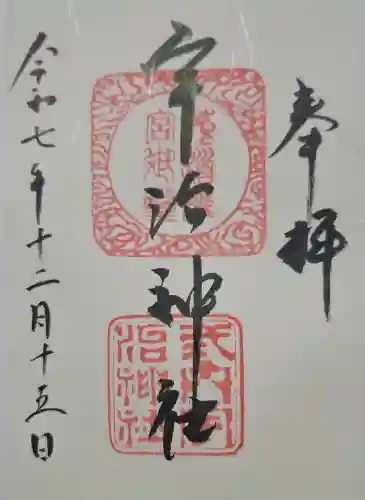 奉拝
宇治神社
令和七年十二月十五日
式内宇
治神社